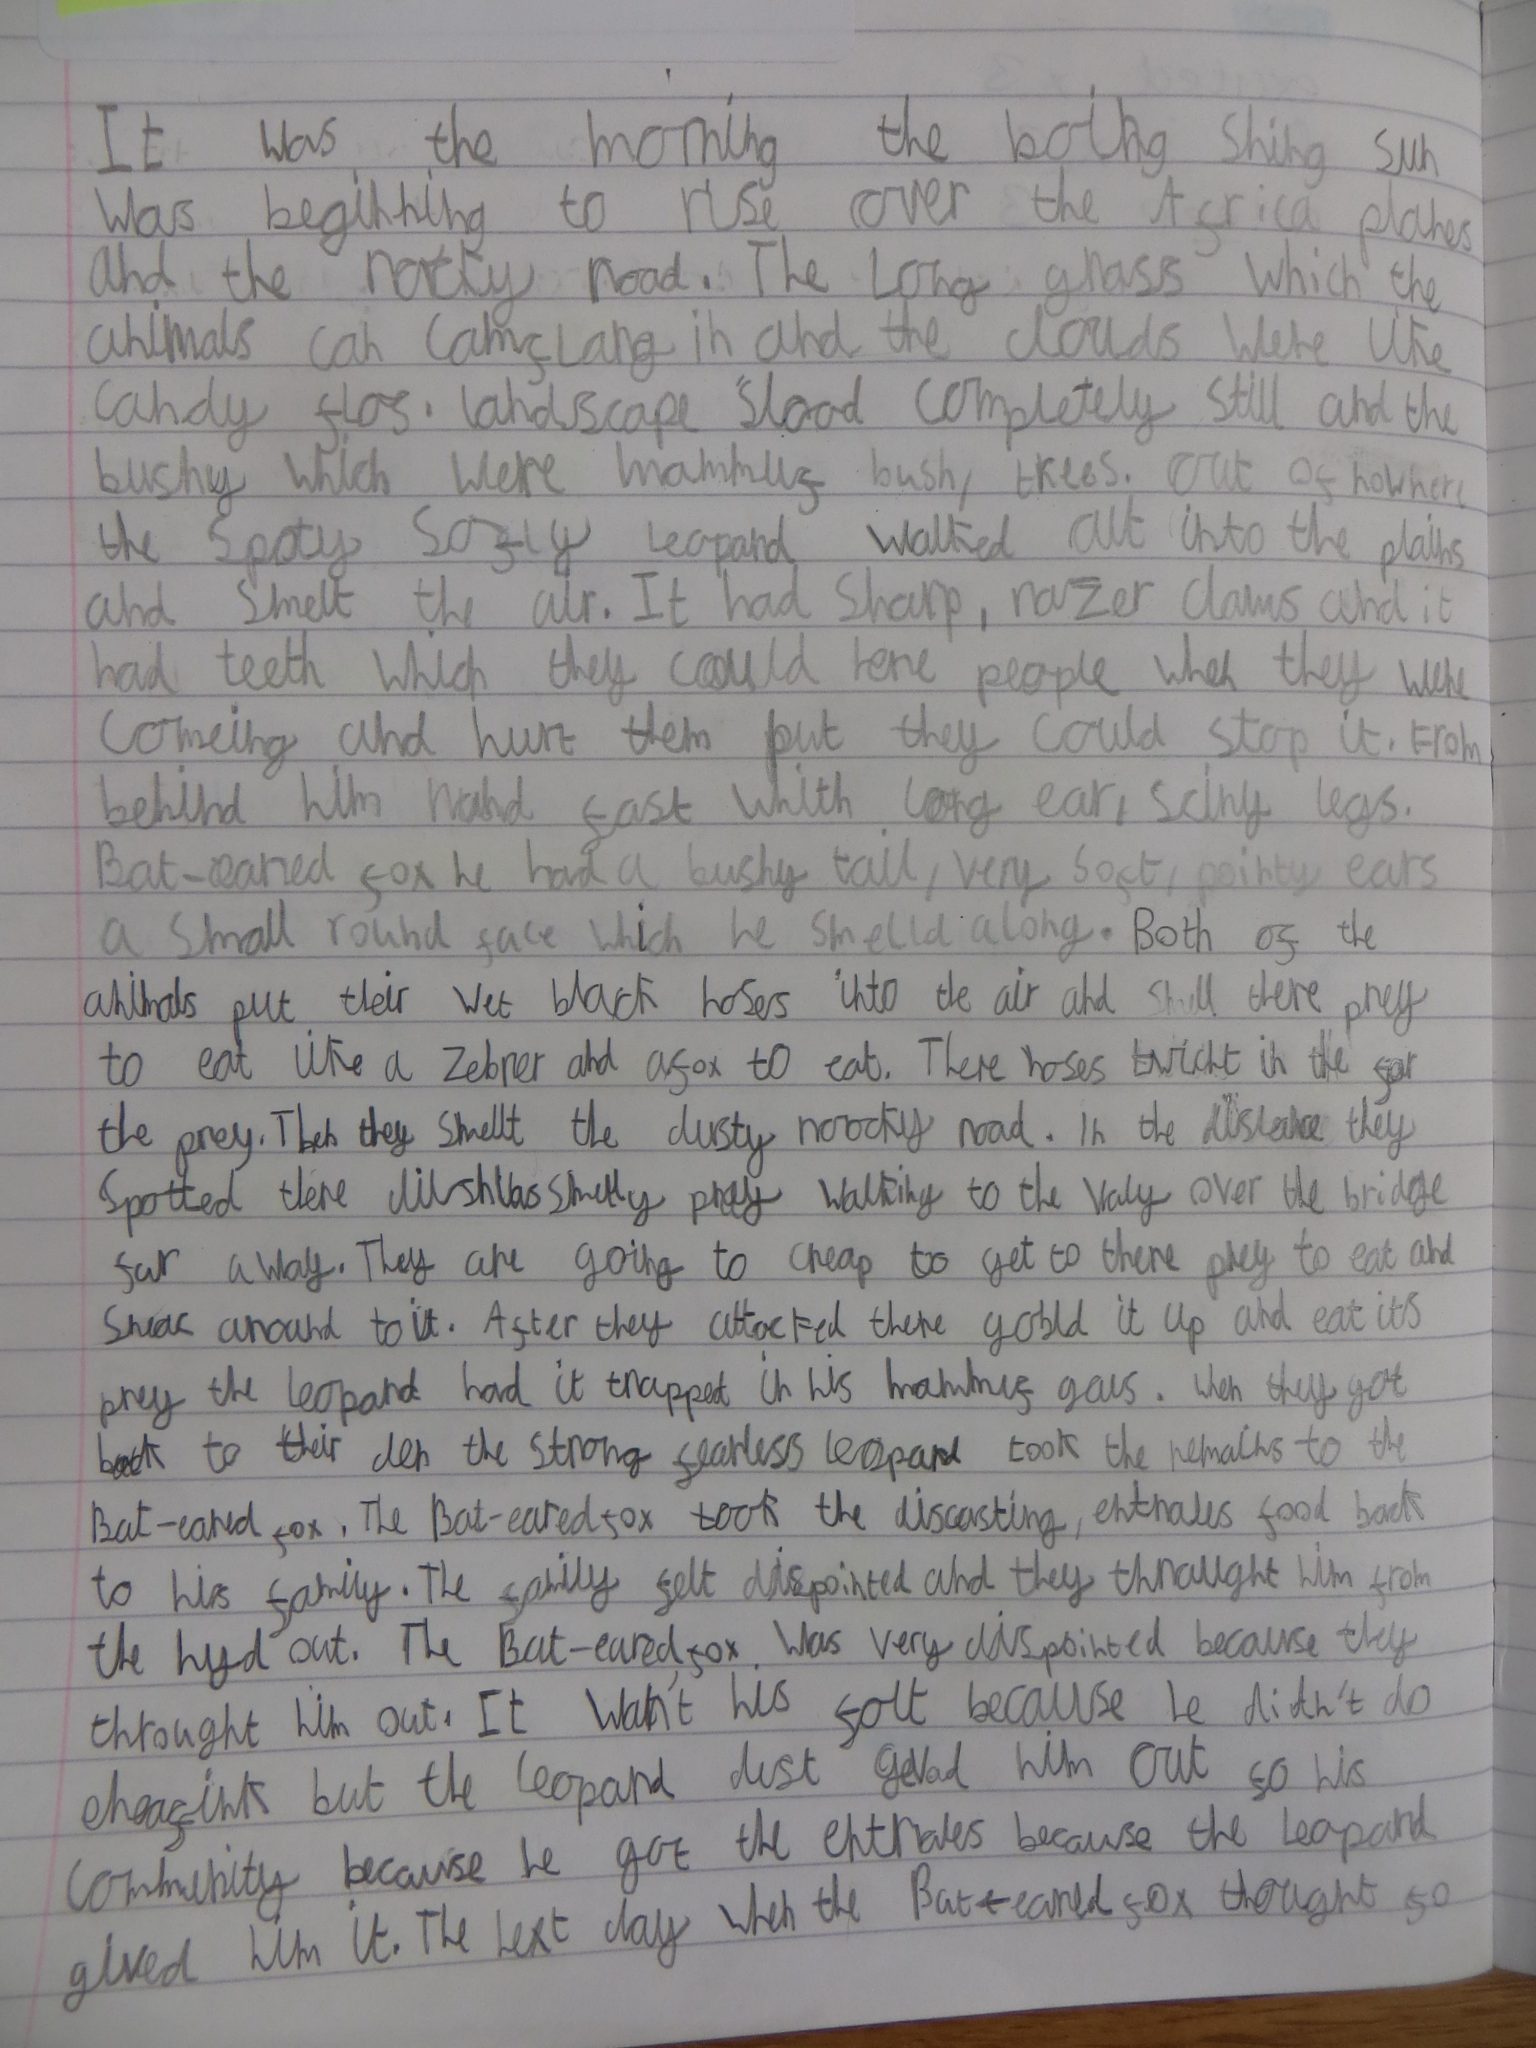 It was the morning the boiling shing sun
was beginning to rise over the Africa planes
and the rocky road. The Long grass which the
animals can camflang in and the clouds were like
candy flos. landscape stood completely still and the
bushy which were mammuf bush, trees. out of nowhere
the spoty leopard walked out into the plains
and smelt the air. It had sharp, razer claws and it
had teeth which they could people when they were
comeing and hurt them put they could stop it. From
behind him rand fast whith long ear, sciny legs.
Bat-eared fox he had a bushy tail, very soft, pointy ears
a small round face which he smelld along. Both of the
animals put their wet black noses into the air and smell there prey
to eat like a zebrer and a fox to eat. There noses twicht in the for
the prey. Then they smellt the dusty roocky road. In the distance they
spotted there smelly prey walking to the valy over the bridge
far away. They are going to creap to get to there prey to eat and
sneac around to it. After they attacked there gobld it up and eat its
prey the leopard had it trapped in his mammuf gaus. when they got
back to their den the strong fearless leopard took the remains to the
Bat-eared fox. The Bat-eared fox took the discasting, entrales food back
to his family. The family felt dispointed and they throught him from
the hyd out. The Bat-eared fox was very dispointed because they
throught him out. It wan't his folt because he didn't do
but the leopard dust him out so his
community because he got the entrales because the leopard
gived him it. The next day when the Bat-eared fox thought so